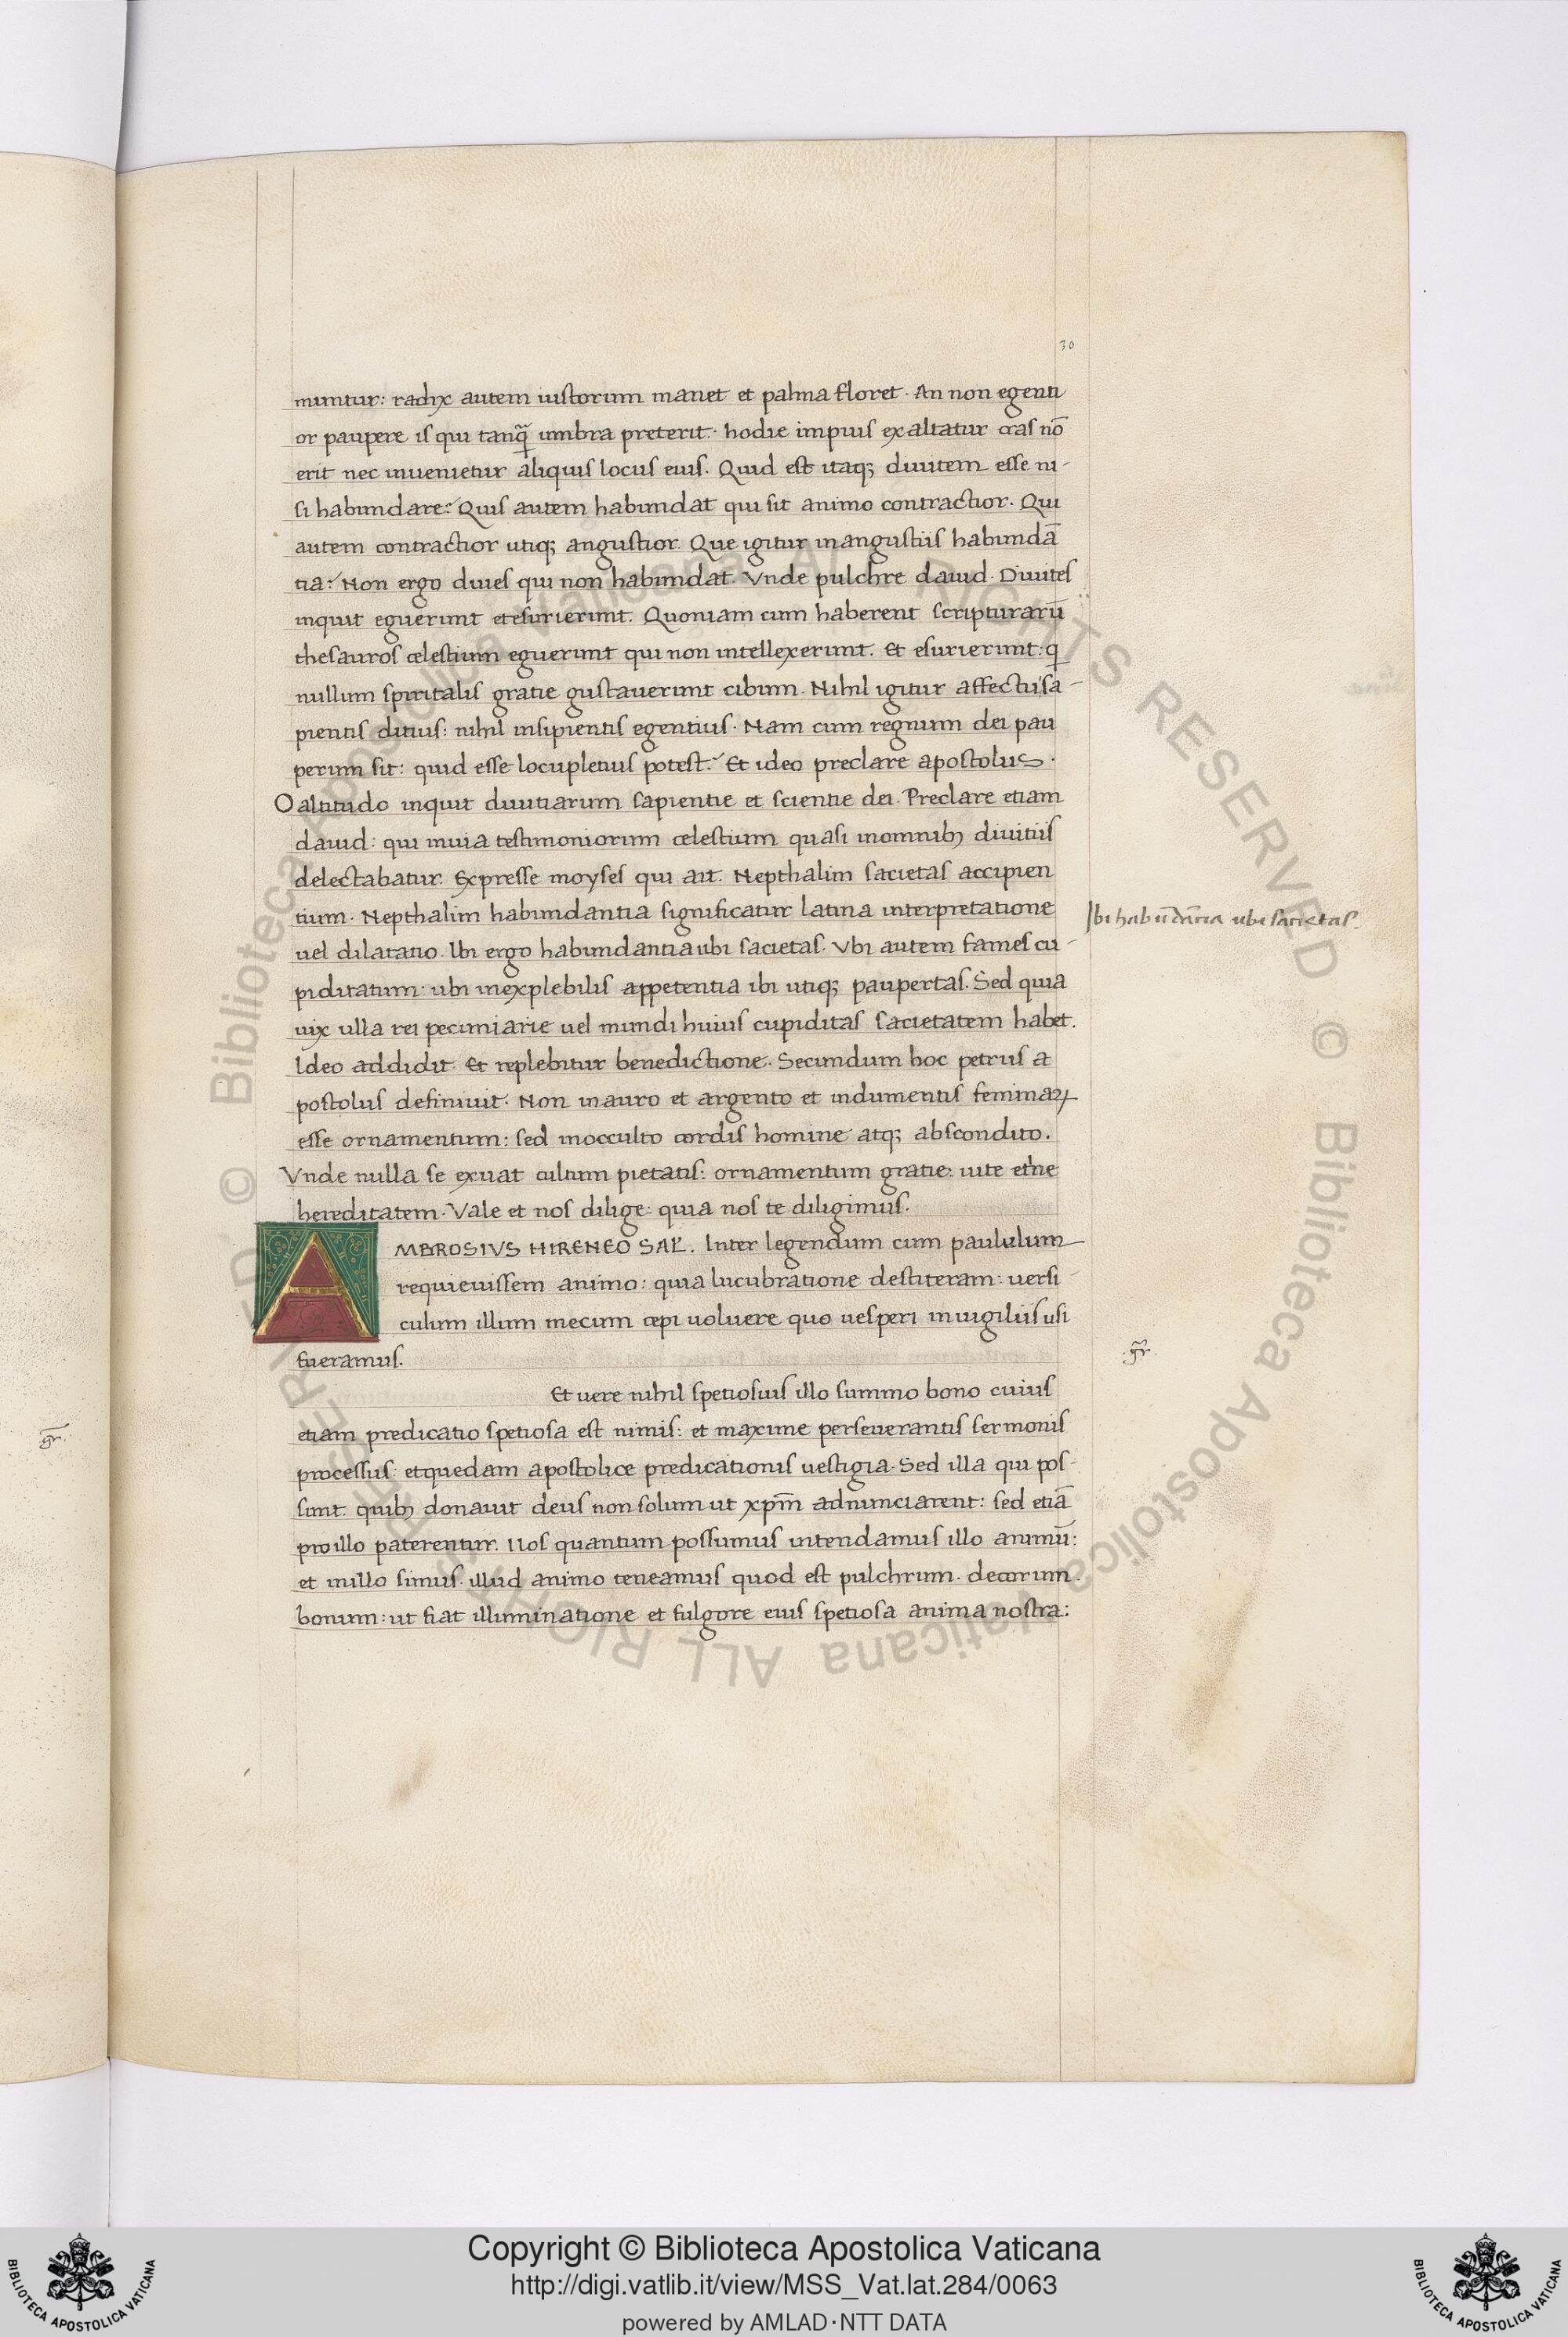 30
muntur: radix autem iustorum manet et palma floret. An non egenti
or paupere is qui tanq̃ umbra preterit. hodie impius exaltatur cras nō
erit nec inuenietur aliquis locus eius. Quid est itaq; diuitem esse ni-
si habundare? Quis autem habundat qui sit animo contractior. Qui
autem contractior utiq; angustior. Que igitur in angustiis habundā
tia? Non ergo diues qui non habundat. Vnde pulchre dauid. Diuites
inquit eguerunt et esurierunt. Quoniam cum haberent scripturarū
thesauros celestium eguerunt qui non intellexerunt. Et esurierunt: q
nullum spiritalis gratie gustauerunt cibum. Nihil igitur affectu sa-
pientis ditius: nihil insipientis egentius. Nam cum regnum dei pau
perum sit: quid esse locupletius potest? Et ideo preclare apostolus.
O altitudo inquit diuitiarum sapientie et scientie dei. Preclare etiam
dauid: qui in uia testimoniorum celestium quasi in omnib; diuitiis
delectabatur. Expresse moyses qui ait. Nepthalim sacietas accipien
tium. Nepthalim habundantia significatur latina interpretatione
Ibi habūdātia ubi sacietas.
uel dilatatio. Ibi ergo habundantia ubi sacietas. Vbi autem fames cu-
piditatum: ubi inexplebilis appetentia ibi utiq; paupertas. Sed quia
uix ulla rei pecuniarie uel mundi huius cupiditas sacietatem habet.
Ideo addidit. Et replebitur benedictione. Secundum hoc petrus a
postolus definiuit. Non in auro et argento et indumentis feminaꝝ
esse ornamentum: sed in occulto cordis homine atq; abscondito.
Vnde nulla se exuat cultum pietatis: ornamentum gratie: uite et̃ne
hereditatem. Vale et nos dilige: quia nos te diligimus.
AMBROSIVS HIRENEO SAL̃. Inter legendum cum paululum
requieuissem animo: quia lucubratione destiteram: uersi-
culum illum mecum cepi uoluere quo uesperi in uigiliis usi
fueramus.
.gr̃.
Et uere nihil spetiosius illo summo bono cuius
etiam predicatio spetiosa est nimis: et maxime perseuerantis sermonis
.gr̃.
processus: et quedam apostolice predicationis uestigia. Sed illa qui pos-
sunt. quib; donauit deus non solum ut xpm̄ adnunciarent: sed etiā
pro illo paterentur. Nos quantum possumus intendamus illo animū:
et in illo simus. illud animo teneamus quod est pulchrum. decorum.
bonum: ut fiat illuminatione et fulgore eius spetiosa anima nostra:
© Biblioteca Apostolica Vaticana ALL RIGHTS RESERVED © Biblioteca Apostolica Vaticana ALL RIGHTS RESERVED
Copyright © Biblioteca Apostolica Vaticana
http://digi.vatlib.it/view/MSS_Vat.lat.284/0063
powered by AMLAD·NTT DATA
BIBLIOTECA APOSTOLICA VATICANA
BIBLIOTECA APOSTOLICA VATICANA